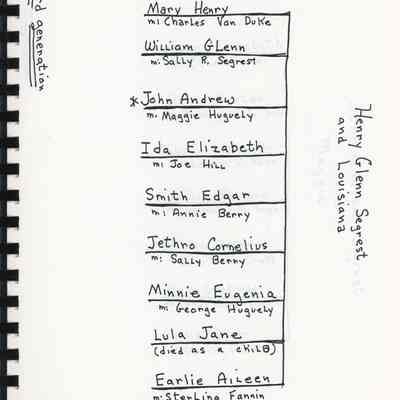 Mary Henry
m: Charles Van Duke
William Glenn
m: Sally R. Segrest
*John Andrew
m. Maggie Huguely
Ida Elizabeth
m: Joe Hill
Smith Edgar
m: Annie Berry
Jethro Cornelius
m: Sally Berry
Minnie Eugenia
m: George Huguely
Lula Jane
(died as a child)
Earlie Aileen
m: Sterling Fannin
Henry Glenn Segrest
and Louisiana
generation